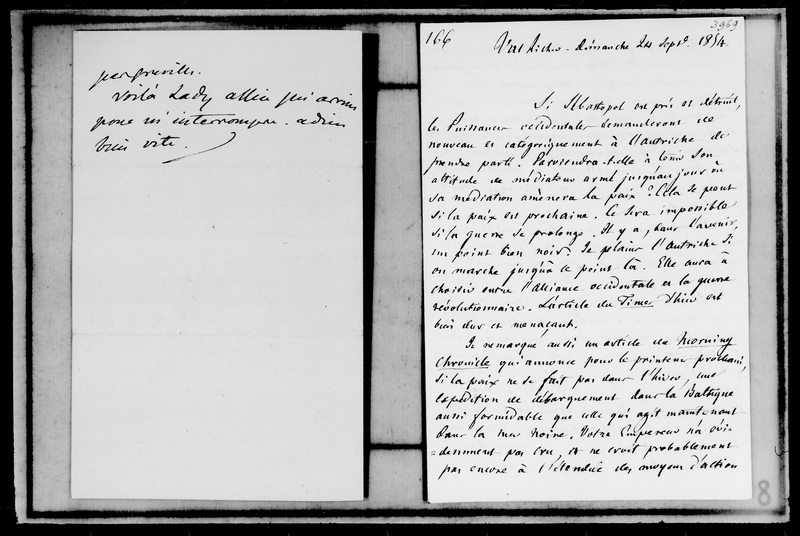 par Greville.
Voilà Lady Allice qui arrive
pour m'interrompre. adieu
bien vite.
3969
166
Val Richer - Dimanche 24 Sept. 1854
Si Sébastopol est pris et détruit,
les Puissances occidentales demanderont de
nouveau et catégoriquement à l'Autriche de
prendre parti. Parviendra-t-elle à tenir son
attitude de médiateur armé jusqu'au jour où
sa médiation amènera la paix ? Cela se peut
si la paix est prochaine. Ce sera impossible
si la guerre se prolonge. Il y a, dans l'avenir,
un point bien noir. Je plains l'Autriche si
on marche jusqu'à ce point là. Elle aura à
choisir entre l'alliance occidentale et la guerre
révolutionnaire. L'article du Times d'hier est
bien dur et menaçant.
Je remarque aussi un article du Morning
Chronicle qui annonce pour le printems prochain,
si la paix ne se fait pas dans l'hiver, une
expédition de débarquement dans la Baltique
aussi formidable que celle qui agit maintenant
dans la mer Noire. Votre Empereur n'a évi-
=demment pas cru, et ne croit probablement
pas encore à l'étendue des moyens d'action
8